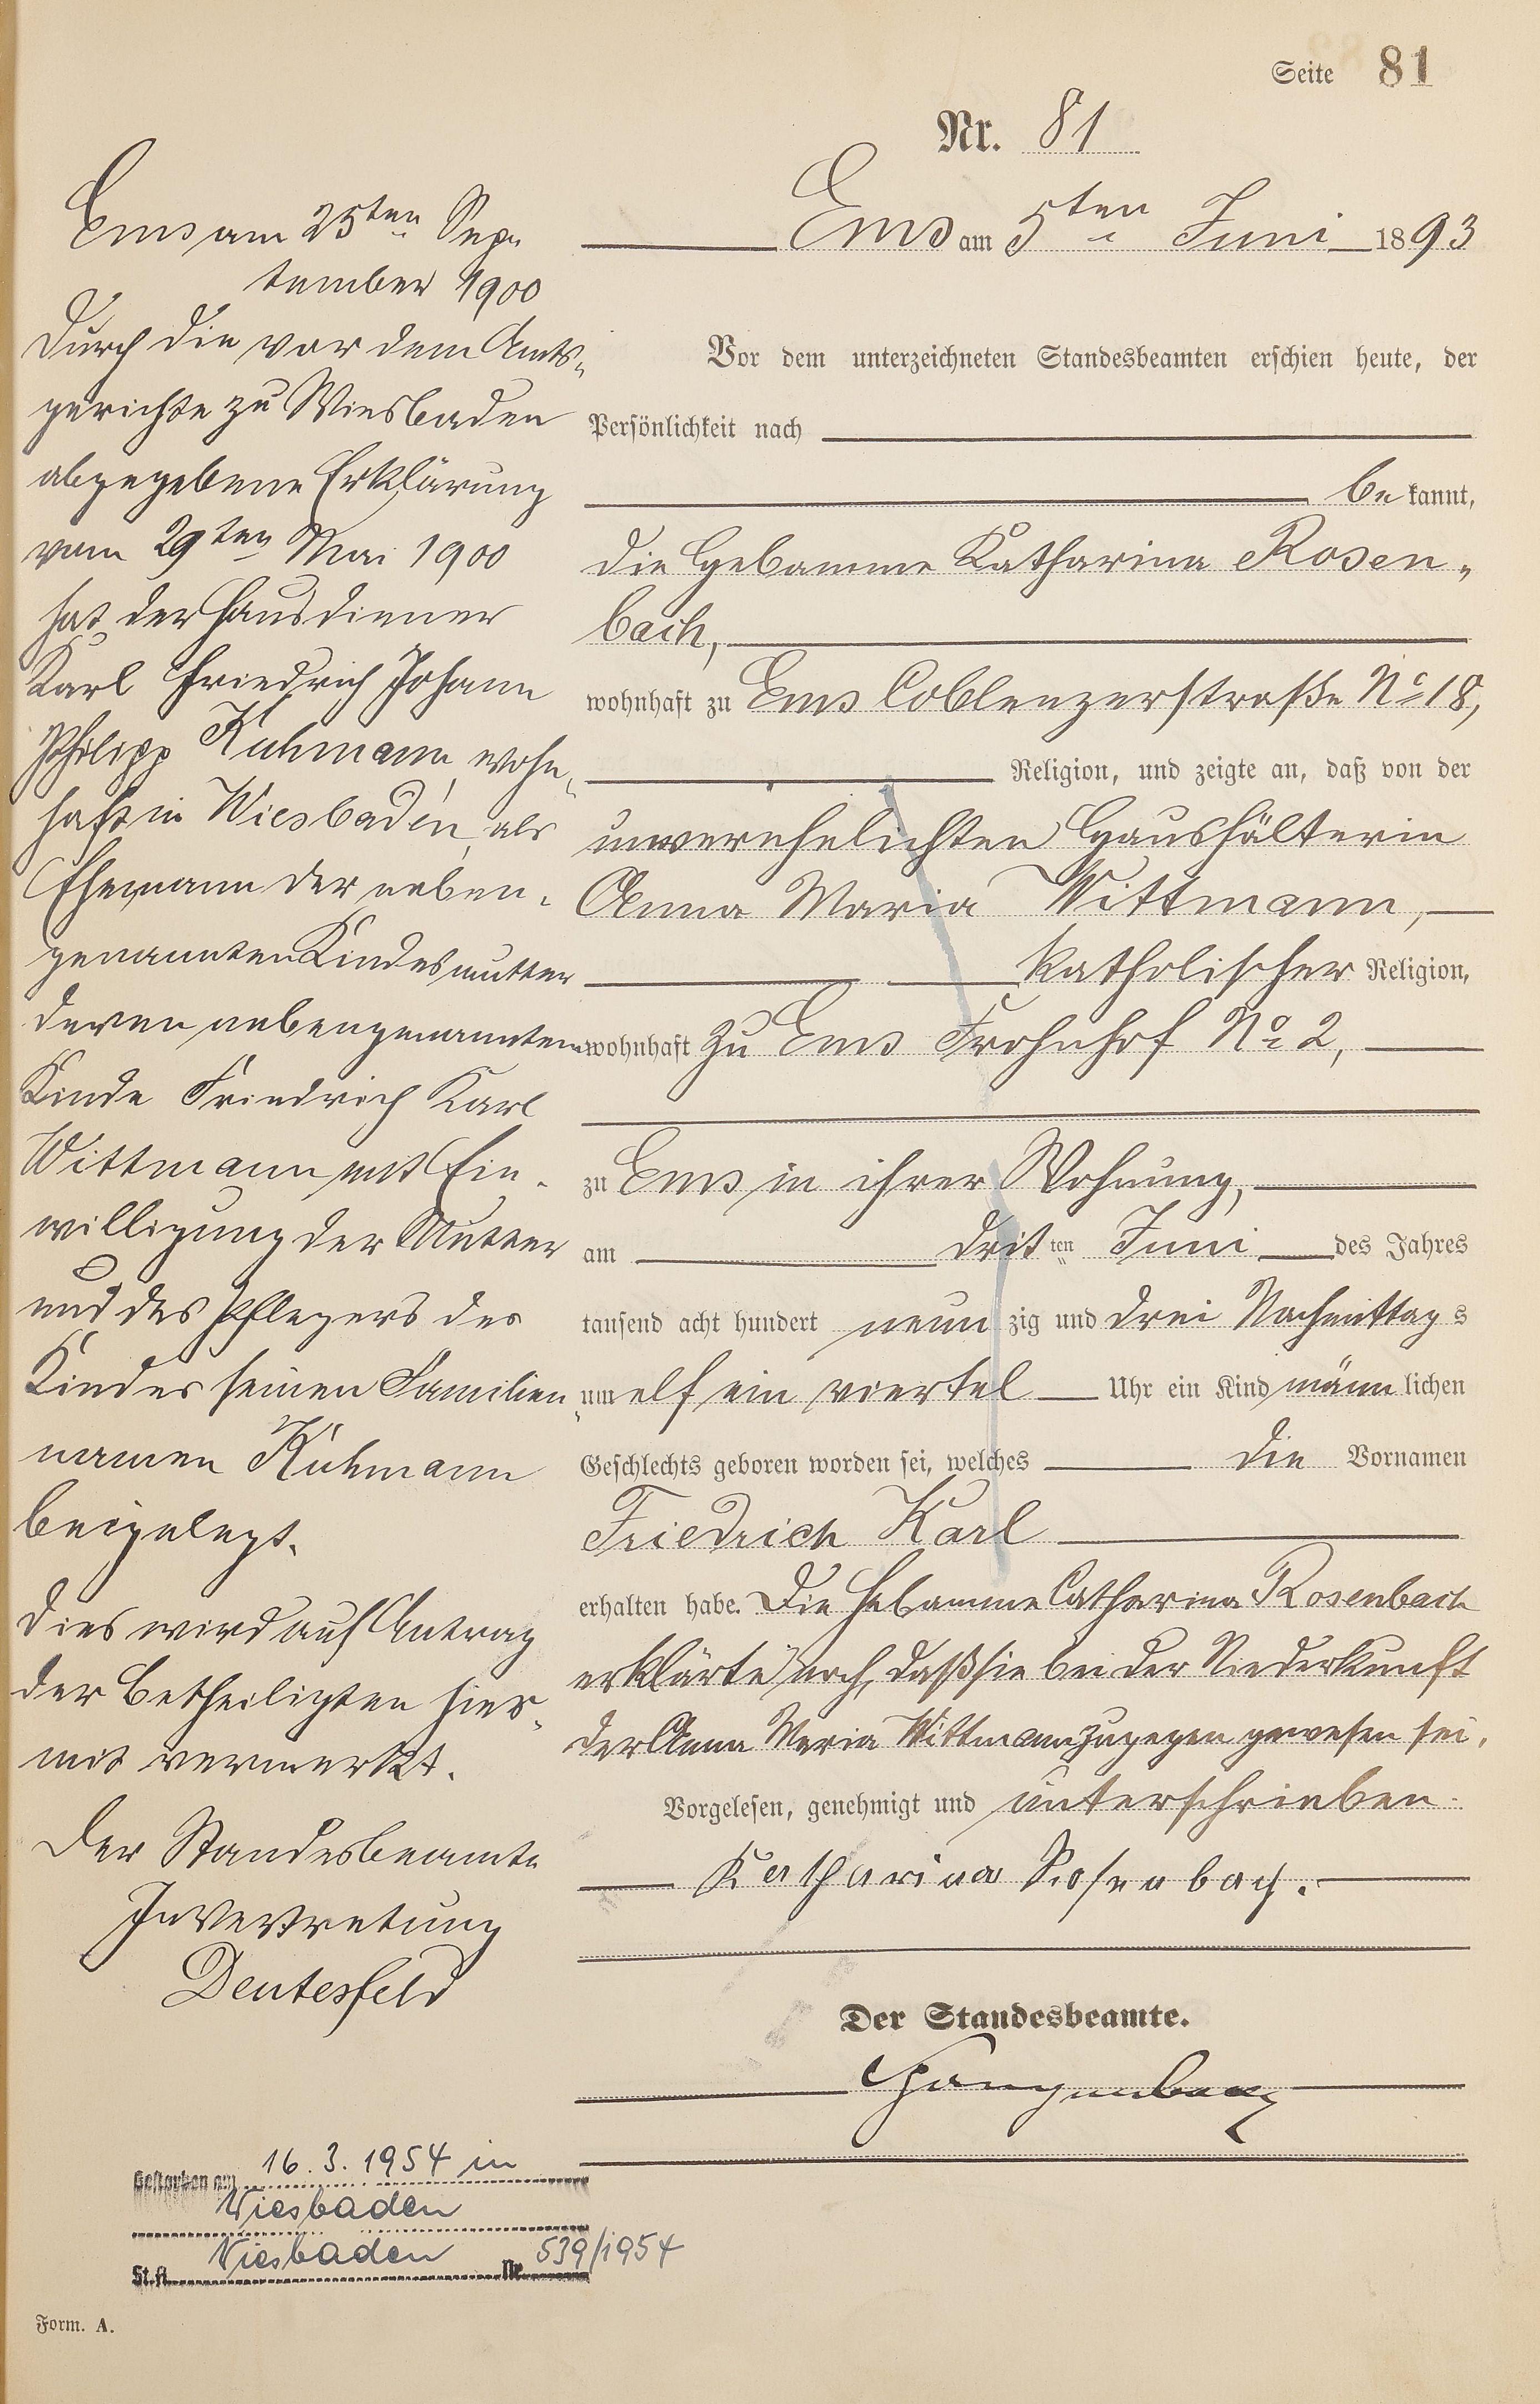 Seite 81
Nr. 81
Ems am 5ten Juni 1893
Vor dem unterzeichneten Standesbeamten erschien heute, der
Persönlichkeit nach
bekannt,
die Hebamme Katharina Rosen-
bach,
wohnhaft zu Ems Coblenzerstraße No 18,
Religion, und zeigte an, daß von der
unverehelichten Haushälterin
Anna Maria Wittmann,
katholischer Religion,
wohnhaft zu Ems Frohnhof No 2,
zu Ems in ihrer Wohnung,
am dritten Juni des Jahres
tausend acht hundert neunzig und drei Nachmittags
um elf ein viertel Uhr ein Kind männlichen
Geschlechts geboren worden sei, welches die Vornamen
Friedrich Karl
erhalten habe. Die Hebamme Catharina Rosenbach
erklärte noch, daß sie bei der Niederkunft
der Anna Maria Wittmann zugegen gewesen sei.
Vorgelesen, genehmigt und unterschrieben.
Katharina Rosenbach.
Der Standesbeamte.
Ems am 25ten Sep-
tember 1900
Durch die vor dem Amts-
gerichte zu Wiesbaden
abgegebene Erklärung
vom 29ten Mai 1900
hat der Hausdiener
Karl Friedrich Johann
Philipp Kuhmann, wohn-
haft in Wiesbaden, als
Ehemann der neben-
genannten Kindesmutter
deren nebengenannten
Kinde Friedrich Karl
Wittmann mit Ein-
willigung der Mutter
und des Pflegers des
Kindes seinen Familien-
namen Kuhmann
beigelegt.
Dies wird auf Antrag
der Betheiligten hier-
mit vermerkt.
Der Standesbeamte
In Vertretung
Deutesfeld
Gestorben am 16.3.1954 in
Wiesbaden
St.A. Wiesbaden Nr. 539/1954
Form. A.